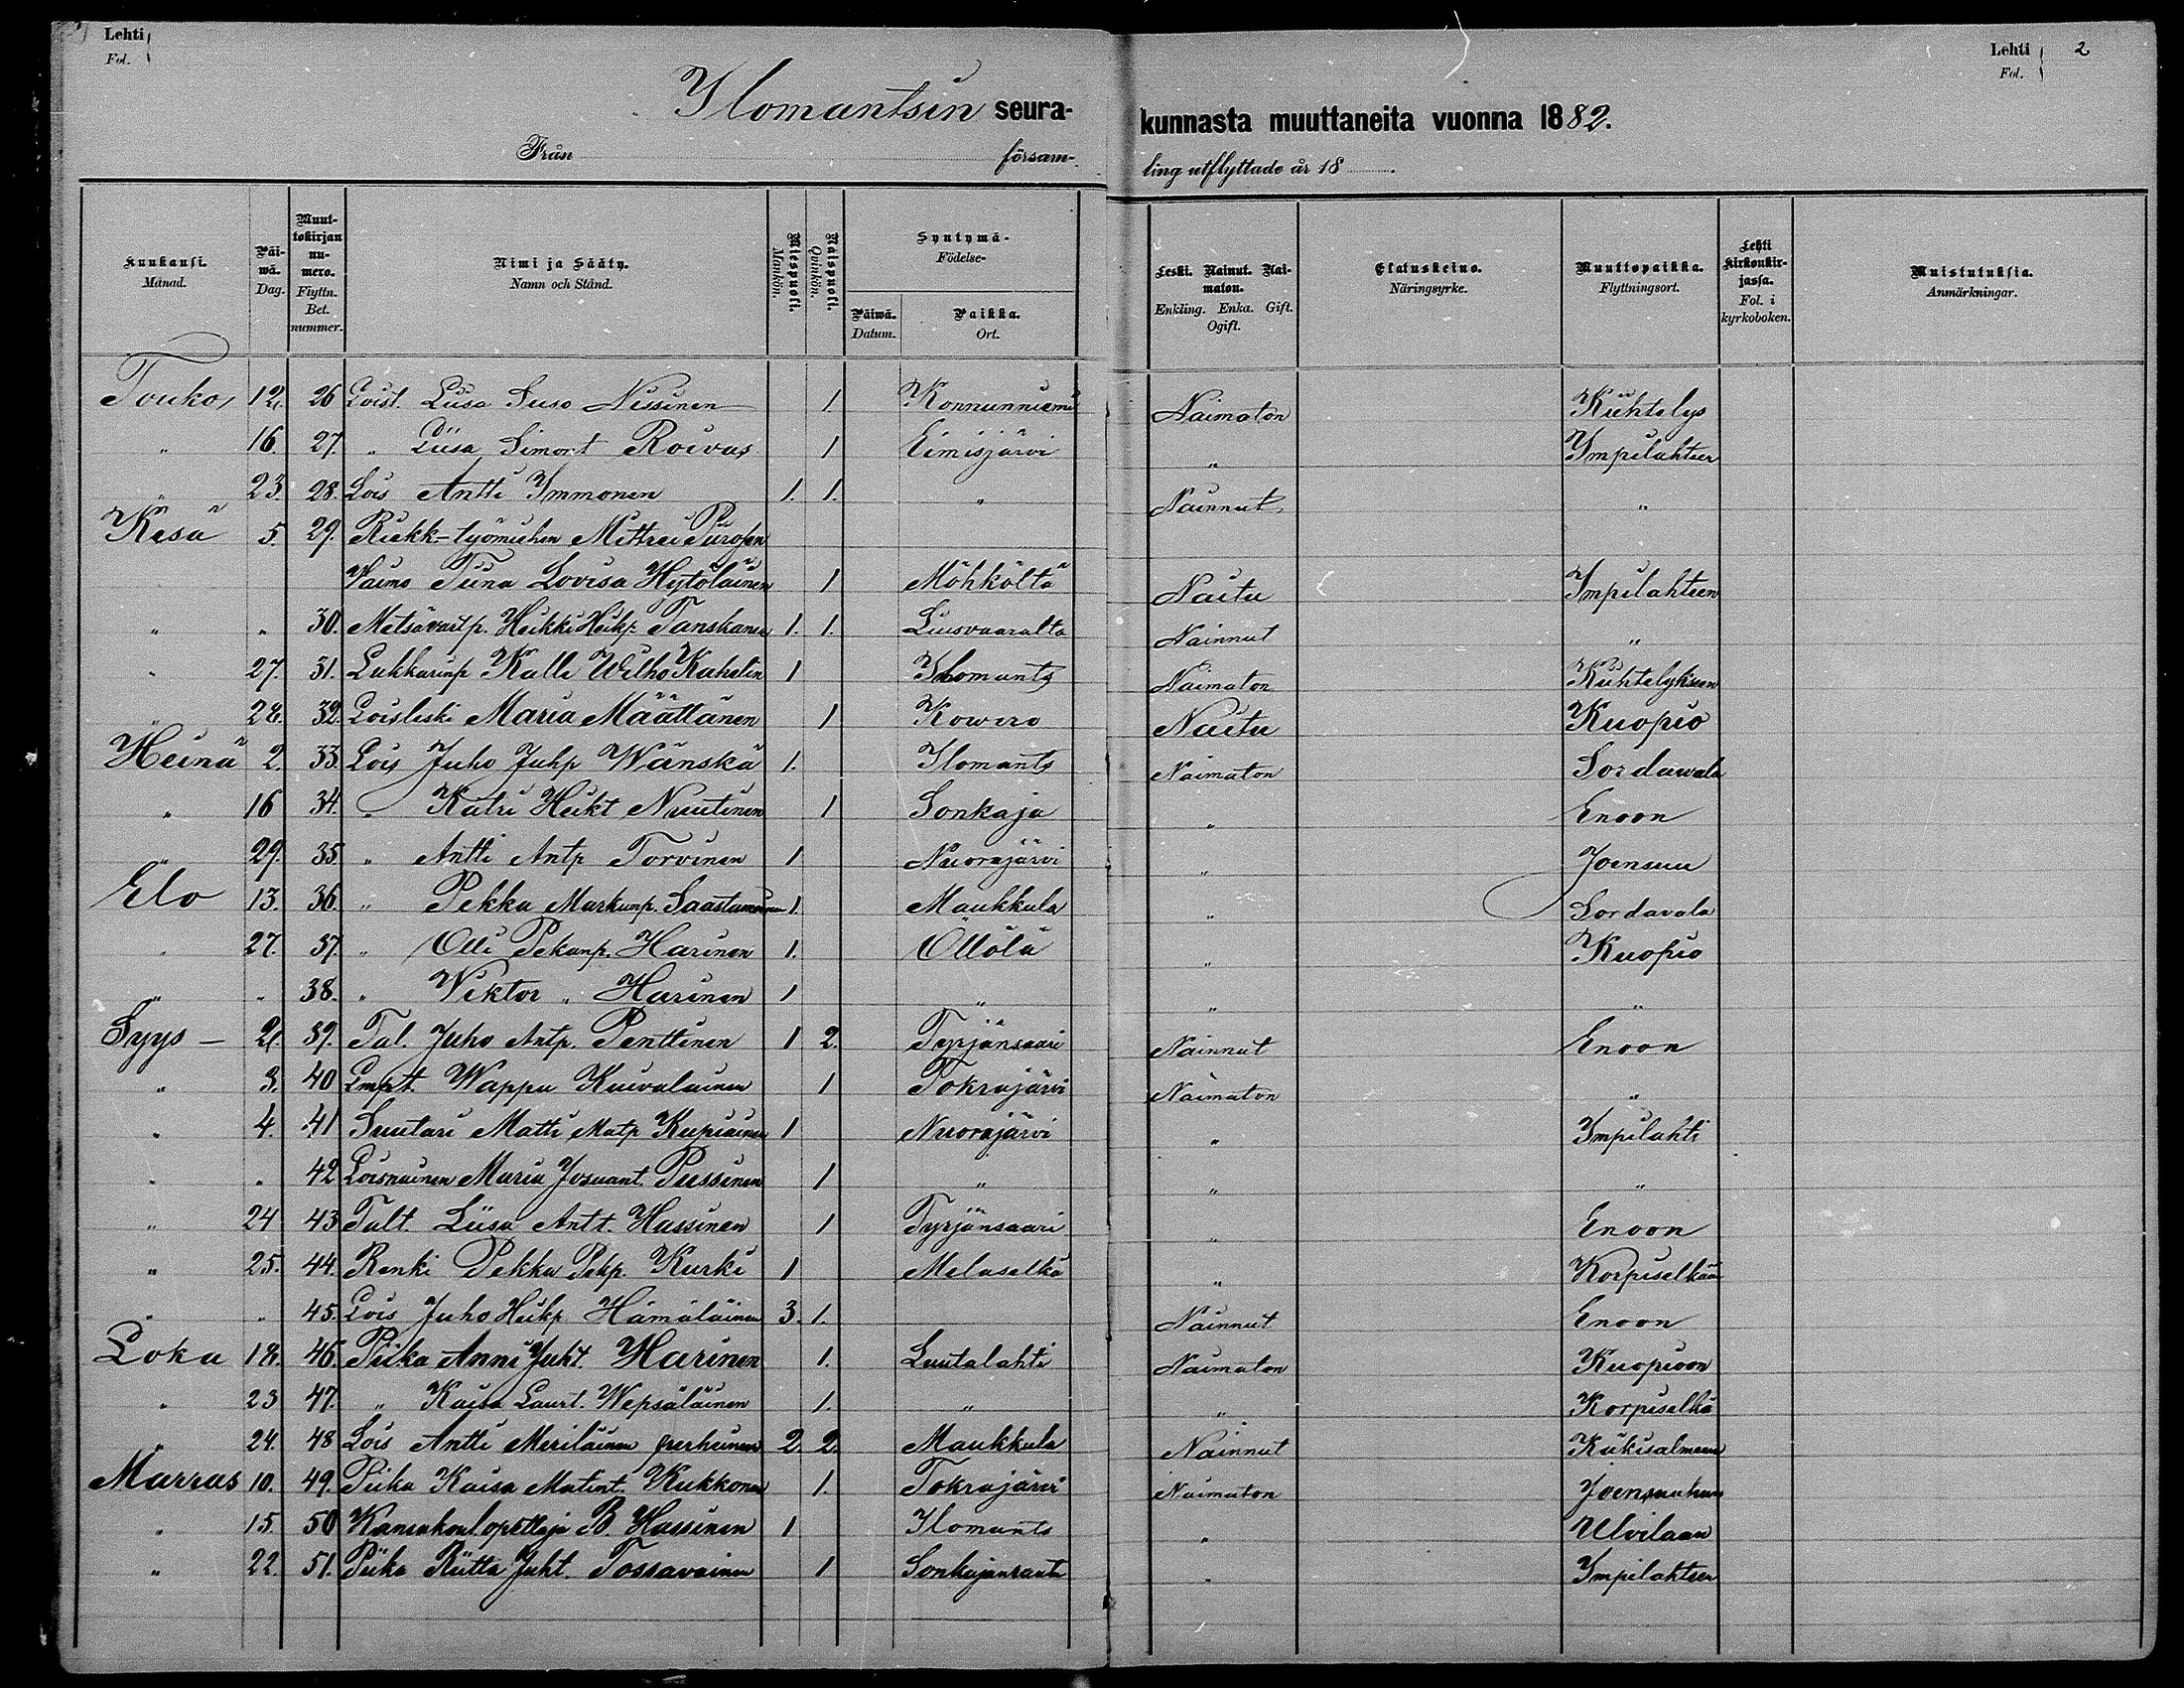 Lehti
Fol.
Lehti 2
Fol.
Ilomantsin seura-kunnasta muuttaneita vuonna 1882.
Från försam-ling utflyttade år 18
Kuukausi. Månad. Päi-wä. Dag. Muut-tokirjan nu-mero. Flyttn. Bet. nummer. Nimi ja Sääty. Namn och Stånd. Miespuoli. Mankön. Naispuoli. Qvinkön. Syntymä- Födelse- Päiwä. Datum. Paikka. Ort. Leski. Nainut. Nai-maton. Enkling. Enka. Gift. Ogift. Elatuskeino. Näringsyrke. Muuttopaikka. Flyttningsort. Lehti kirkonkir-jassa. Fol. i kyrkoboken. Muistutuksia. Anmärkningar.
Touko, 12. 26 Loist. Liisa Nissinen 1. Konnunniemi Naimaton Kiihtelys
" 16. 27. " Liisa Simont Roivas 1 Eimisjärvi " Impilahteen
" 23. 28. Lois Antti Immonen 1. 1. " Nainnut "
Kesä 5. 29. Riekk-työmiehen Mittrei Purosen
Vaimo Tiina Lovisa Hytöläinen 1 Möhköltä Naitu Impilahteen
" " 30. Metsävartp. Heikki Heikp. Tanskanen 1. 1. Liusvaaralta Nainnut "
" 27. 31. Lukkarinp Kalle Wilho 1 Ilomants Naimaton Kiihtelyksen
" 28. 32. Loisleski Maria Määttänen 1 Kowero Naitu Kuopio
Heinä 2. 33. Lois Juho Juhp Wänskä 1. Ilomants Naimaton Sordawala
" 16 34. " Katri Heikt Nuutinen 1 Sonkaja " Enoon
" 29. 35 " Antti Antp Torvinen 1 Nuorajärvi " Joensuu
Elo 13. 36. " Pekka Markunp. Saastamoinen 1. Maukkula " Sordavala
" 27. 37. " Olli Pekanp. Harinen 1. Ollölä " Kuopio
" " 38. " Viktor " Harinen 1 " " "
Syys - 2. 39. Tal. Juho Antp. Penttinen 1 2. Tyrjänsaari Nainnut Enoon
" 3. 40 Wappu Kuivalainen 1 Tokrajärvi Naimaton "
" 4. 41 Suutari Matti Matp Kupiainen 1 Nuorajärvi " Impilahti
" " 42 Loisnainen Maria Josuant. Pussinen 1 " " "
" 24 43 Talt. Liisa Antt. Hassinen 1 Tyrjänsaari " Enoon
" 25. 44. Renki Pekka Pekp. Kurki 1 Melaselkä " Korpiselkään
" " 45. Lois Juho Heikp Hämäläinen 3. 1. Nainnut Enoon
Loka 18. 46. Piika Anni Juht. Harinen 1. Luutalahti Naimaton Kuopioon
" 23 47. " Kaisa Laurt. Wepsäläinen 1. " " Korpiselkä
" 24. 48 Lois Antti Meriläinen perheinen 2. 2. Maukkula Nainnut Käkisalmeen
Marras 10. 49. Piika Kaisa Matint. Kukkonen 1. Tokrajärvi Naimaton Joensuuhun
" 15. 50 Kansakoul.opettaja B. Hassinen 1 Ilomants " Ulvilaan
" 22. 51. Piika Riitta Juht. Tossavainen 1 Sonkajanranta " Impilahteen